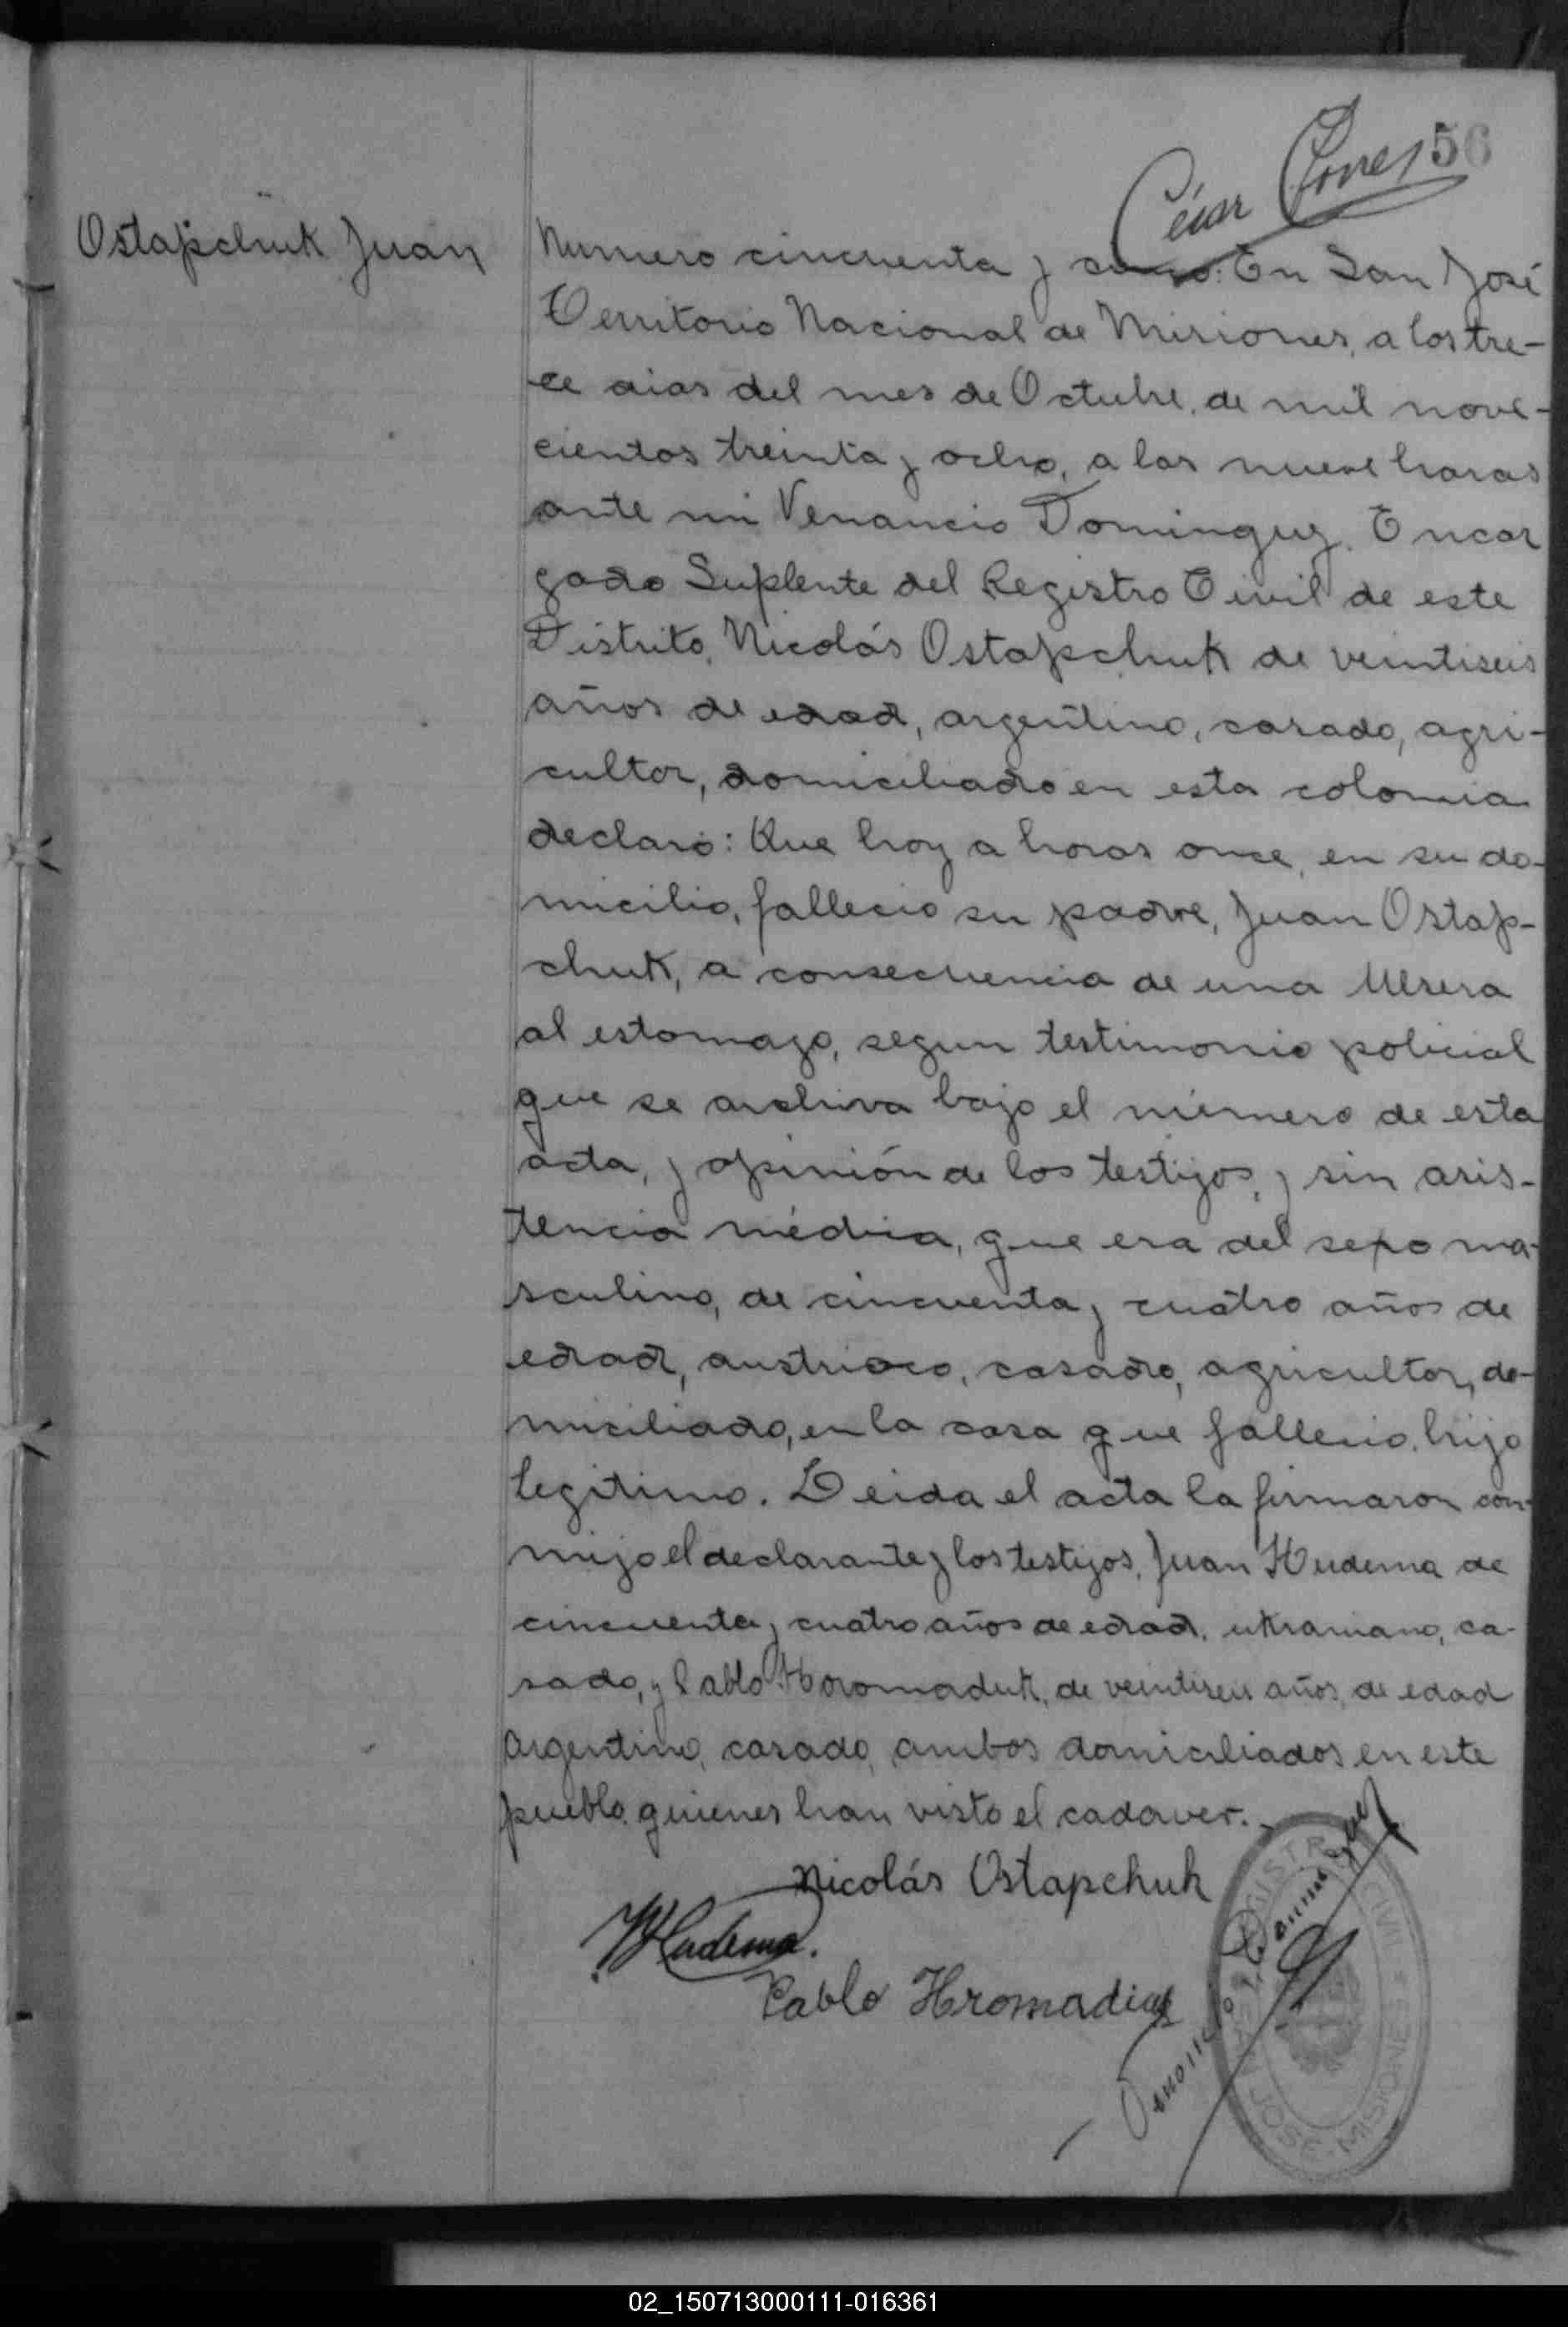 César Torres
56
Ostapchuk Juan
Numero cincuenta y En San José
Territorio Nacional de Misiones, a los tre-
ce dias del mes de Octubre, de mil nove-
cientos treinta y ocho, a las nueve horas
ante mi Venancio Dominguez. Encar
gado Suplente del Registro Civil de este
Distrito, Nicolás Ostapchuk de veintiseis
años de edad, argentino, casado, agri-
cultor, domiciliado en esta colonia
declaró: Que hoy a horas once, en su do-
micilio, fallecio su padre, Juan Ostap-
chuk, a consecuencia de una Ulsera
al estomago, segun testimonio policial
que se archiva bajo el número de esta
acta, y opinión de los testigos, y sin asis-
tencia médica, que era del sexo ma-
sculino, de cincuenta y cuatro años de
edad, austriaco, casado, agricultor, do-
miciliado, en la casa que fallecio. hijo
legitimo. Leida el acta la firmaron con-
migo el declarante y los testigos, Juan Hudema de
cincuenta y cuatro años de edad. ukraniano, ca-
sado, y Pablo Horomaduk, de veintiseis años, de edad
argentino, casado, ambos domiciliados en este
pueblo. quienes han visto el cadaver.-
Nicolás Ostapchuk
Hudema.
Pablo Hromadiuk
Venancio Dominguez
REGISTRO CIVIL
SAN JOSE - MISIONES
02_150713000111-016361